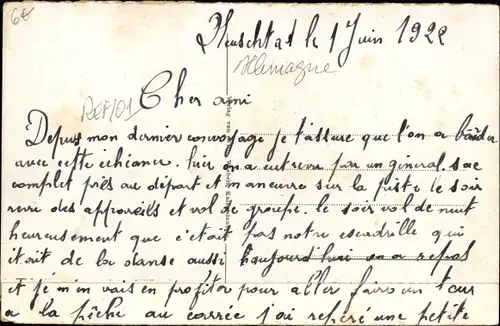 6€
Neuschtat le 1 Juin 1922
Allemagne
REF/01
Cher ami
Depuis mon dernier convoyage je t'assure que l'on a barda
avec cette échiance. hier on a eut revu par un general. sac
complet près au départ et maneuvre sur la piste le soir
revu des appareils et vol de groupe. le soir vol de nuit
heureusement que c'était pas notre escadrille qui
itait de la danse aussi haujourd'hui on a repos
et je m'en vais en profiter pour aller faire un tour
a la pêche au carrée j'ai repéré une petite